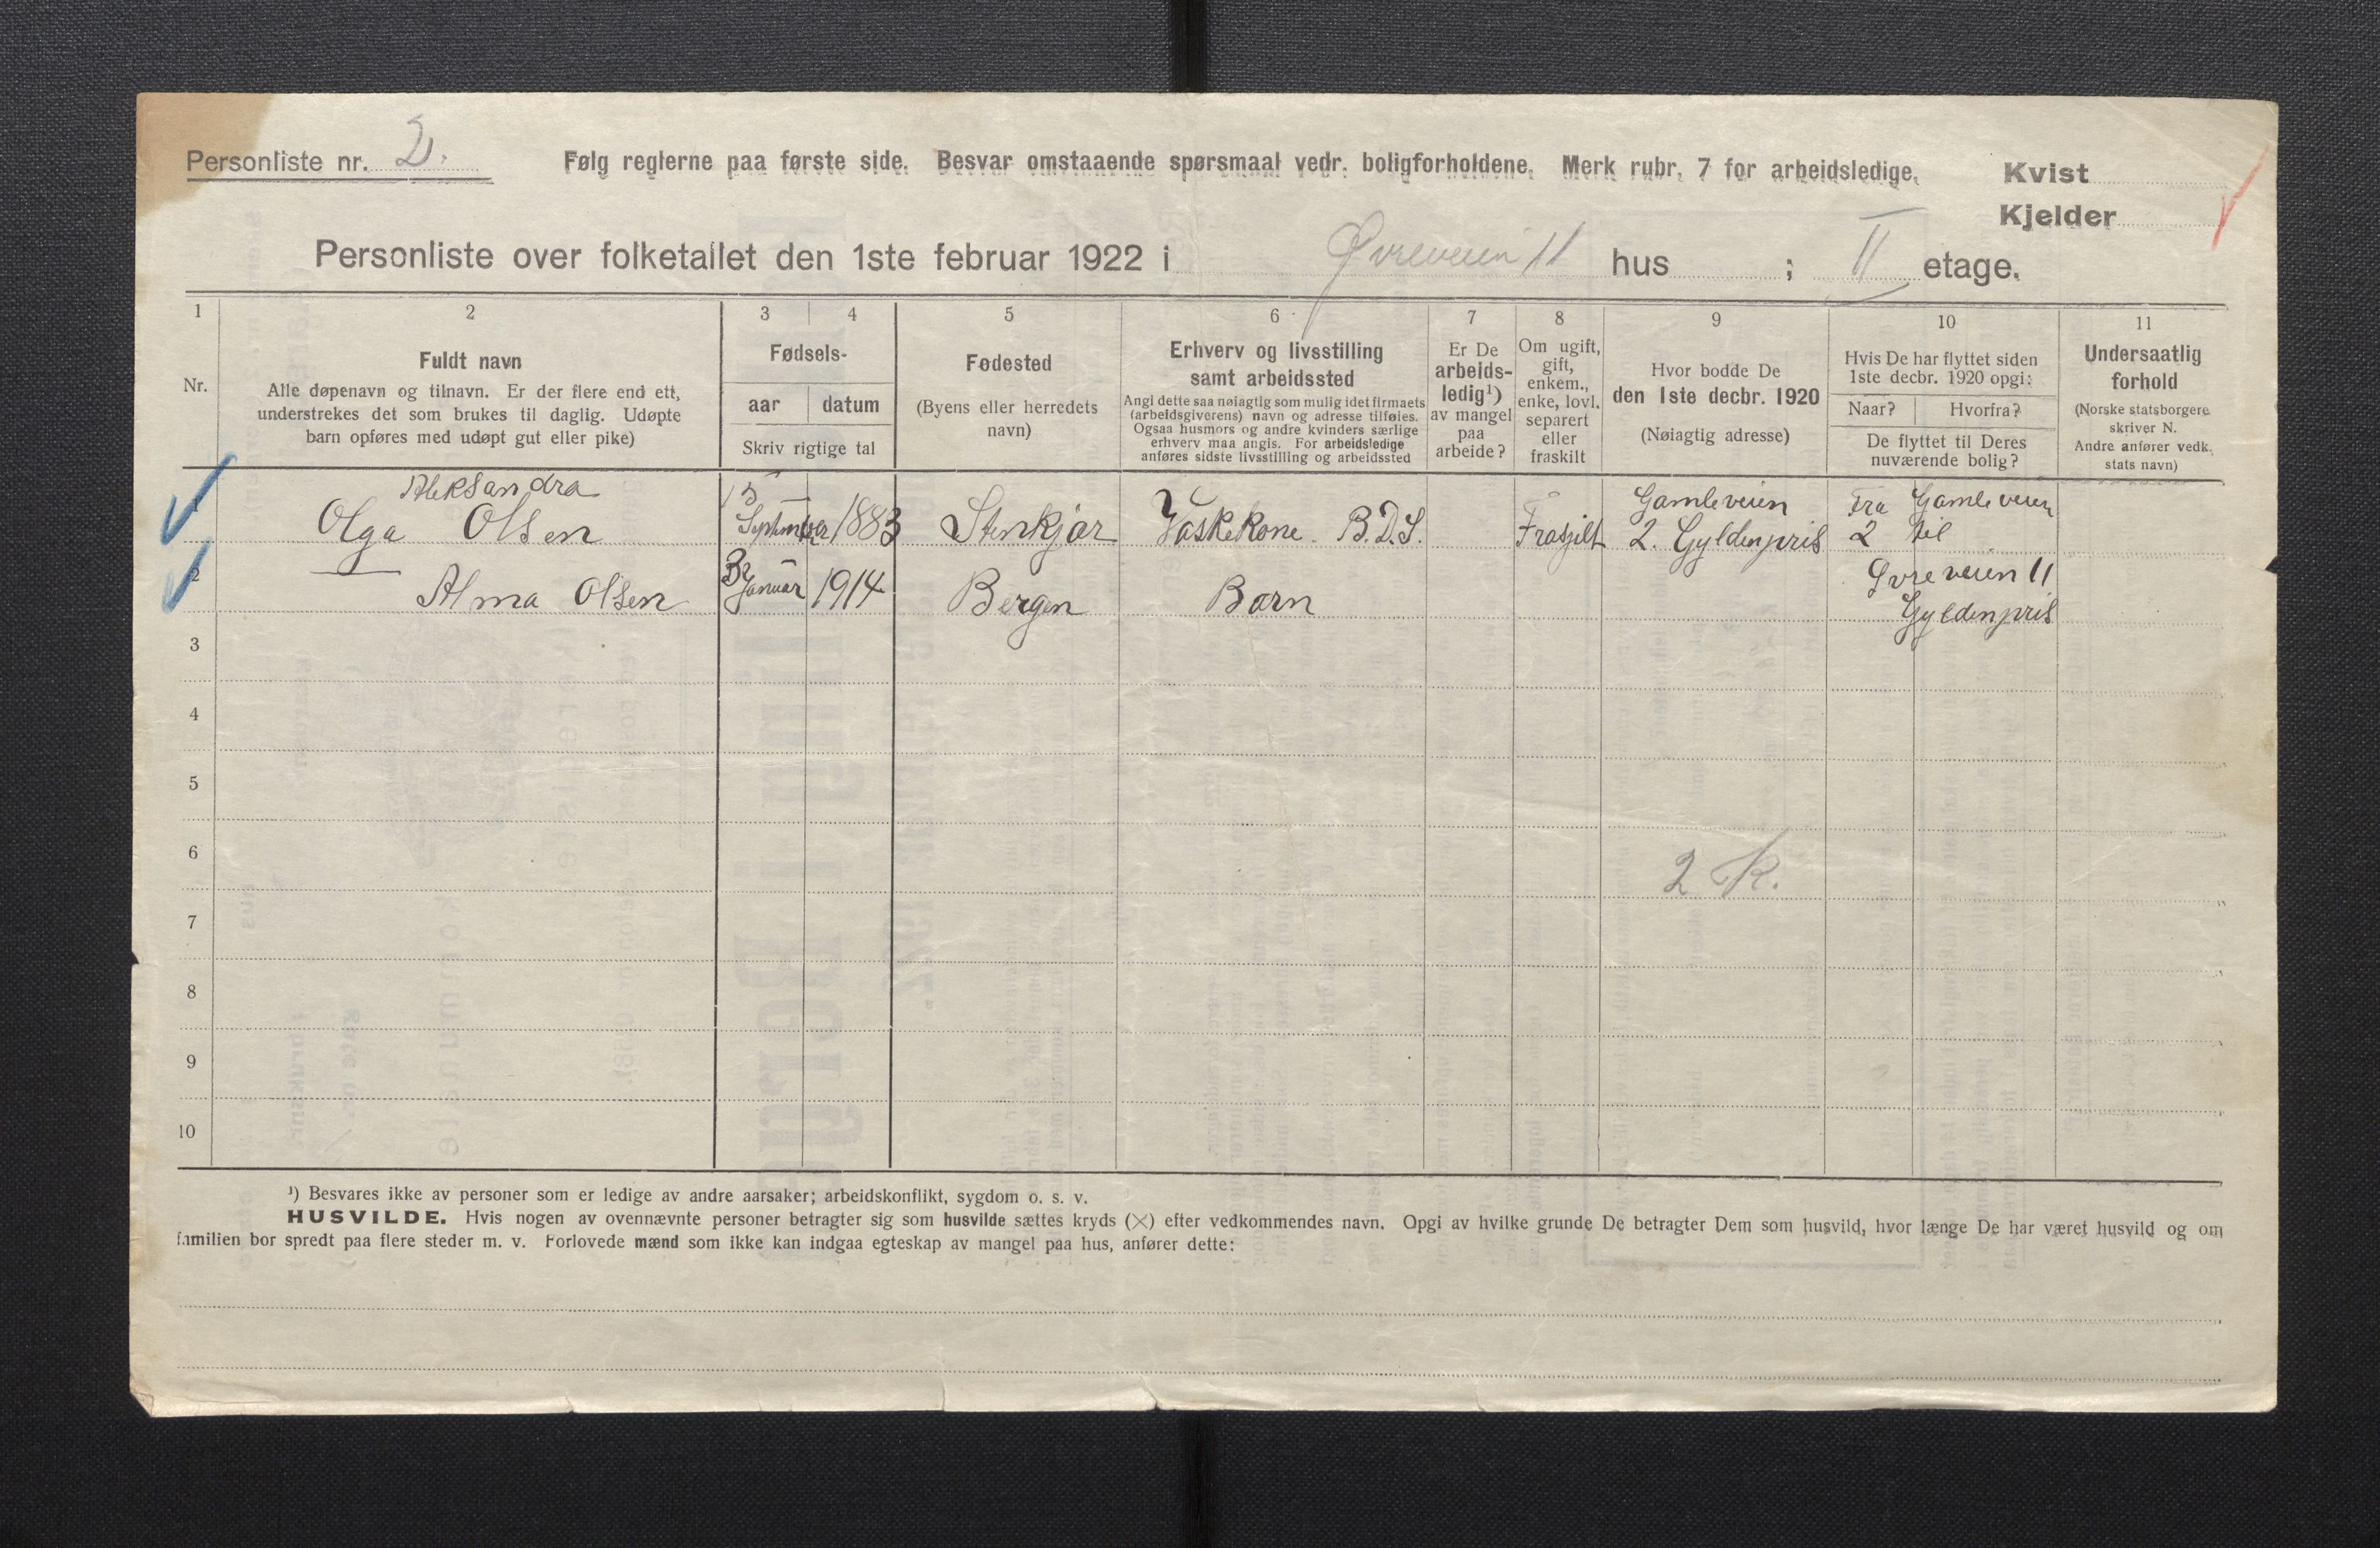 Personliste nr. 2.
Følg reglerne paa første side. Besvar omstaaende spørsmaal vedr. boligforholdene. Merk rubr. 7 for arbeidsledige.
Kvist
Kjelder
Personliste over folketallet den 1ste februar 1922 i Øvreveien 11 hus ; II etage.
1 2 3 4 5 6 7 8 9 10 11
Nr.
Fuldt navn
Alle døpenavn og tilnavn. Er der flere end ett,
understrekes det som brukes til daglig. Udøpte
barn opføres med udøpt gut eller pike)
Fødsels-
aar datum
Skriv rigtige tal
Fødested
(Byens eller herredets
navn)
Erhverv og livsstilling
samt arbeidssted
Angi dette saa nøiagtig som mulig idet firmaets
(arbeidsgiverens) navn og adresse tilføies.
Ogsaa husmors og andre kvinders særlige
erhverv maa angis. For arbeidsledige
anføres sidste livsstilling og arbeidssted
Er De
arbeids-
ledig¹)
av mangel
paa
arbeide?
Om ugift,
gift,
enkem.,
enke, lovl.
separert
eller
fraskilt
Hvor bodde De
den 1ste decbr. 1920
(Nøiagtig adresse)
Hvis De har flyttet siden
1ste decbr. 1920 opgi:
Naar? Hvorfra?
De flyttet til Deres
nuværende bolig?
Undersaatlig
forhold
(Norske statsborgere
skriver N.
Andre anfører vedk.
stats navn)
Aleksandra
1 Olga Olsen
September 1883 Stenkjær Vaskekone. B.D.S. Frasjilt
Gamleveien
2. Gyldenpris
Fra Gamleveien
2 til
Øvreveien 11
Gyldenpris
2 Alma Olsen
Januar 1914 Bergen Barn
3
4
5
6
2 K.
7
8
9
10
¹) Besvares ikke av personer som er ledige av andre aarsaker; arbeidskonflikt, sygdom o. s. v.
HUSVILDE. Hvis nogen av ovennævnte personer betragter sig som husvilde sættes kryds (×) efter vedkommendes navn. Opgi av hvilke grunde De betragter Dem som husvild, hvor længe De har været husvild og om
familien bor spredt paa flere steder m. v. Forlovede mænd som ikke kan indgaa egteskap av mangel paa hus, anfører dette: